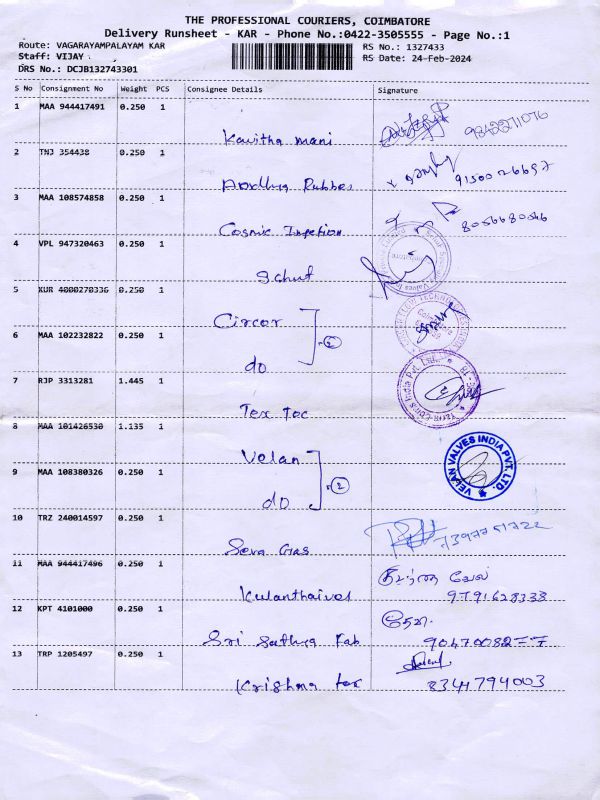 THE PROFESSIONAL COURIERS, COIMBATORE
Delivery Runsheet - KAR - Phone No.:0422-3505555 - Page No.:1
Route: VAGARAYAMPALAYAM KAR RS No.: 1327433
Staff: VIJAY . RS Date: 24-Feb-2024
DRS No.: DCJB132743301
S No Consignment No Weight PCS Consignee Details Signature
1 MAA 944417491 0.250 1
Kavitha mani 9842271076
2 TNJ 354438 0.250 1
Rubber 9150026697
3 MAA 108574858 0.250 1
Cosmic 8056680546
4 VPL 947320463 0.250 1
Schuf
5 KUR 4000270336 0.250 1
Circor
6 MAA 102232822 0.250 1
do
7 RJP 3313281 1.445 1
Tex Tec
8 MAA 101426530 1.135 1
Velan VELAN VALVES INDIA PVT. LTD.
9 MAA 108380326 0.250 1
do 2
10 TRZ 240014597 0.250 1
Seva Gas 7397751722
11 MAA 944417496 0.250 1
Kulanthaivel வேல்
9791628338
12 KPT 4101000 0.250 1
Sri Sathya Fab 9047008277
13 TRP 1205497 0.250 1
Krishna tex 8344794003